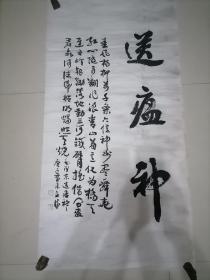 送瘟神
春风杨柳万千条六亿神州尽舜尧
红雨随心翻作浪青山着意化为桥天
连五岭银锄落地动三河铁臂摇借问瘟
君欲何往纸船明烛照天烧